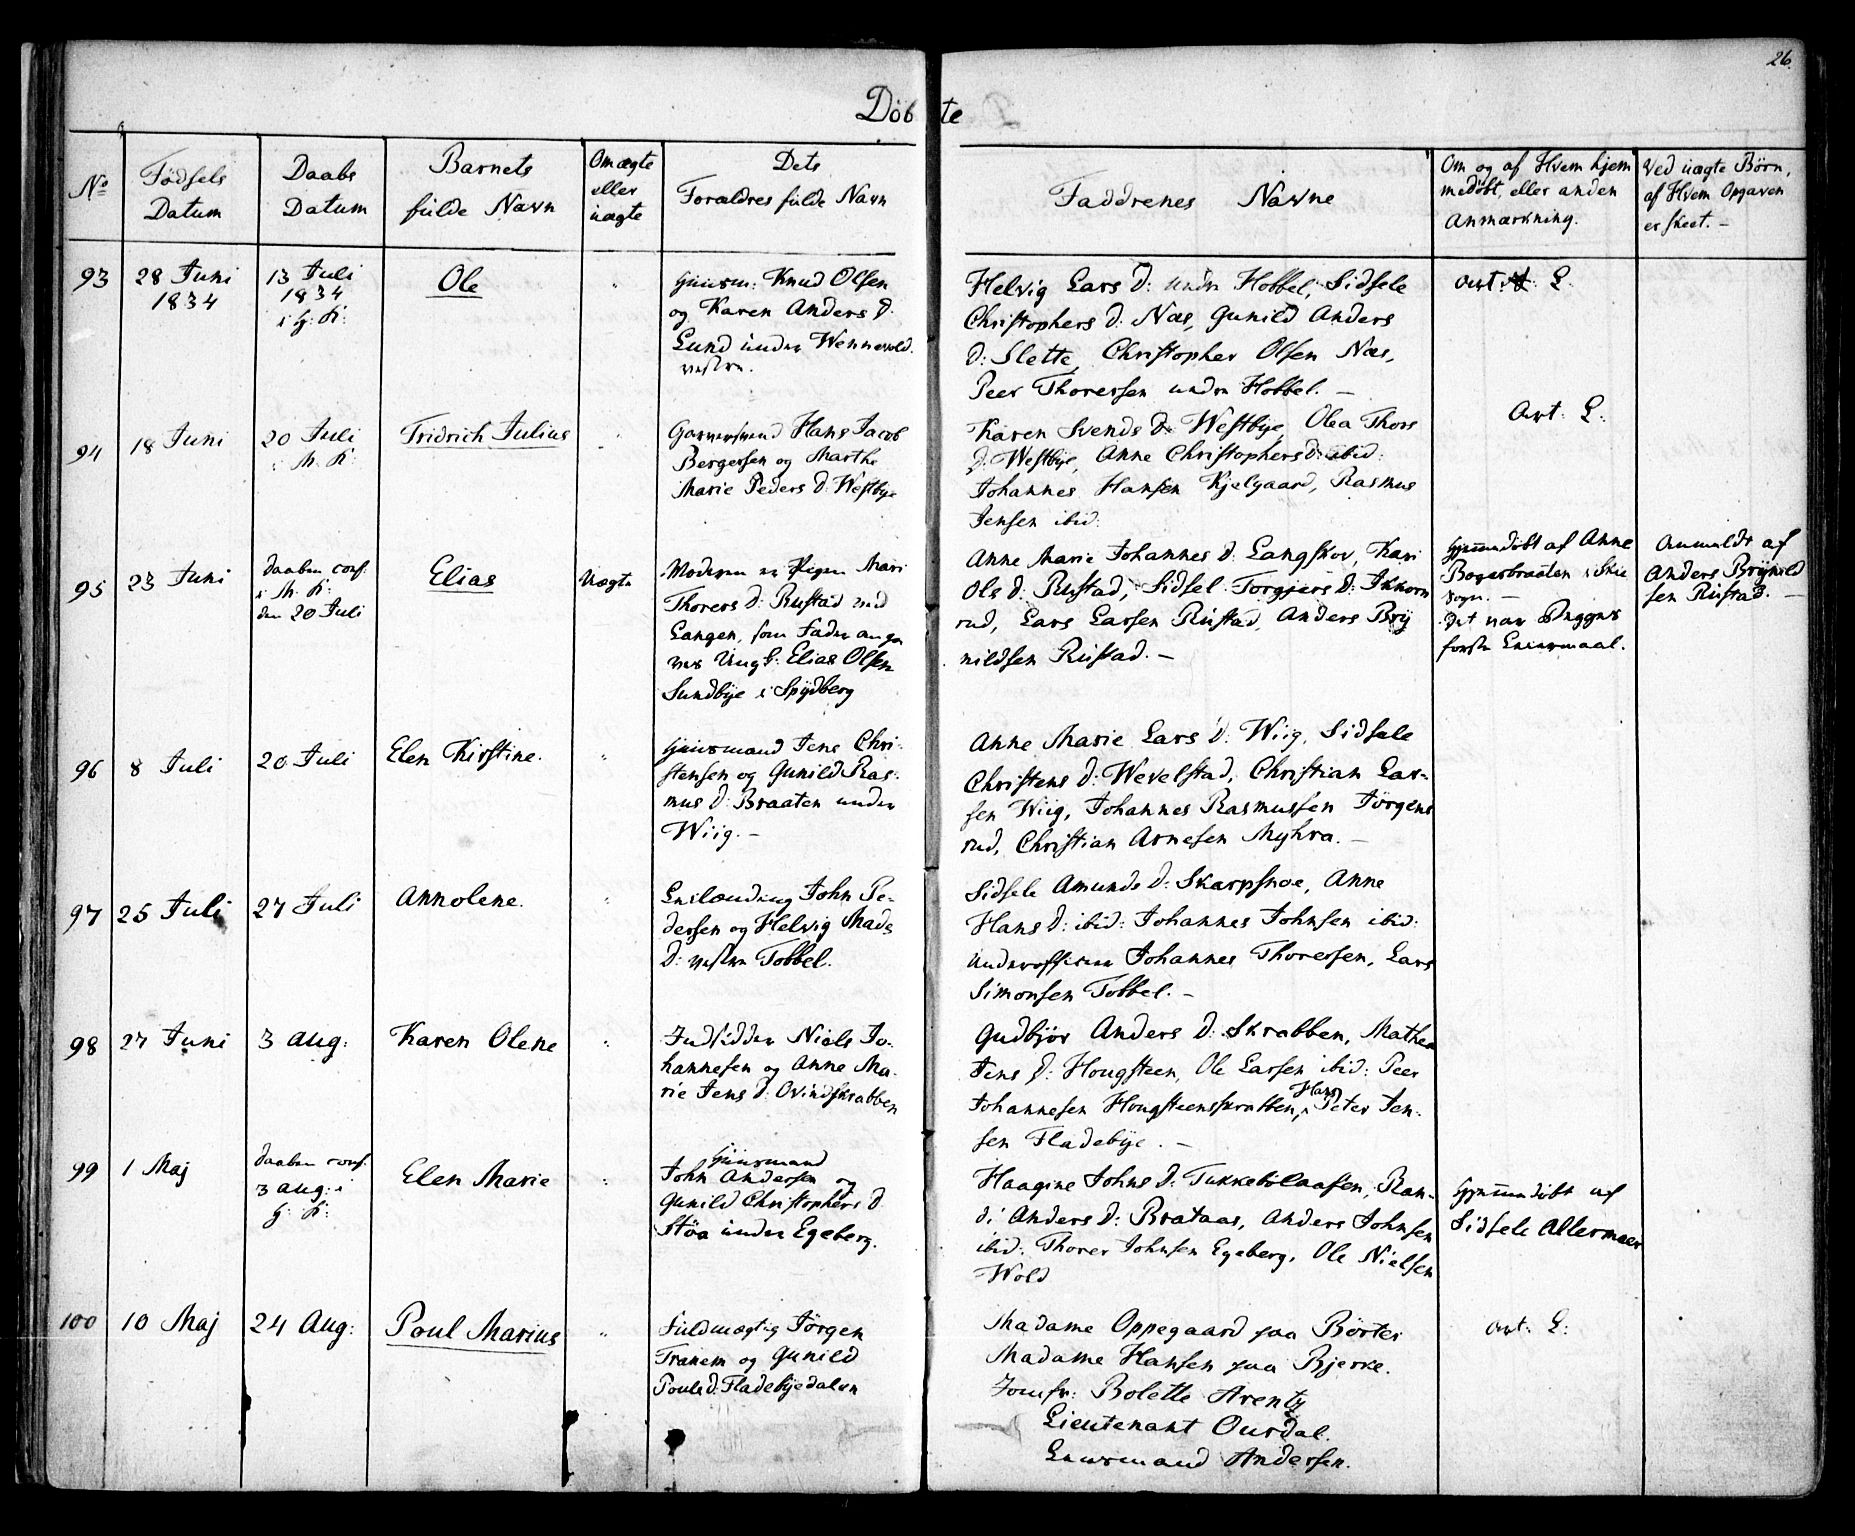 26.
Döbte
No
Födsels
Datum
Daabs
Datum
Barnets
fulde Navn
Om ægte
eller
uægte
Dets
Forældres fulde Navn
Faddrenes Navne
Om og af Hvem hjem
medøbt, eller anden
Anmærkning.
Ved uægte Børn,
af Hvem Opgaven
er skeet. –
93
28 Juni
1834
13 Juli
1834
i H: K:
Ole
"
Huusm: Knud Olsen
og Karen Anders D.
Lund under Wennevold
vestre.
Helvig Lars D: under Hobbel, Sidsele
Christophers D. Næs, Gunild Anders
D: Slette, Christopher Olsen Næs,
Peer Thoressen under Hobbel. –
Att: L.
94
18 Juni
20 Juli
i M. K:
Fridrich Julius
"
Garversvend Hans Jacob
Bergersen og Marthe
Marie Peders D: Westbye
Karen Svends D: Westbye, Olea Thors
D: Westbye, Anne Christophers D: ibid:
Johannes Hansen Kjelgaard, Rasmus
Jensen ibid:
Att: L:
95
23 Juni
daaben conf:
i M. K:
den 20 Juli
Elias
Uægte
Moderen er Pigen Mari
Thorers D: Rustad ved
Langen, som Fader anga
ves Ung k: Elias Olsen
Sundbye i Spydberg
Anne Marie Johannes D: Langskov, Kari
Ols D: Rustad, Sidsel Torgjers D: Ikkorn
rud, Lars Larsen Rustad, Anders Bry
nildsen Rustad. –
Hjemmedøbt af Anne
Bogerbraaten i Skie
Sogn. –
Det var Begges
første Leiermaal.
Anmeldt af
Anders Brynild
sen Rustad. –
96
8 Juli
20 Juli
Elen Kirstine.
"
Huusmand Jens Chri-
stensen og Gunild Ras-
mus D: Braaten under
Wiig. –
Anne Marie Lars D: Wiig, Sidsele
Christens D: Wevelstad, Christian Lar-
sen Wiig, Johannes Rasmussen Jörgens
rud, Christian Arnesen Myhra. –
97
25 Juli
27 Juli
Annolene.
"
Leilænding John Pe-
dersen og Helvig Mads
D: vestre Tobbel.
Sidsele Amunds D: Skarpsnoe, Anne
Hans D: ibid: Johannes Johnsen ibid:
Underofficeer Johannes Thoresen, Lars
Simonsen Tobbel. –
98
27 Juni
3 Aug:
Karen Olene
"
Indsidder Niels Jo-
hannesen og Anne Ma-
rie Jens D: Ovindskrabben
Gudbjør Anders D: Skrabben, Mathea
Jens D: Hougsteen, Ole Larsen ibid: Peer
Johannesen Hougsteenskrabben, Hans Peter Jen-
sen Fladebye. –
99
1 Maj
daaben conf:
3 Aug: i
H: K:
Elen Marie
"
Huusmand
John Andersen og
Gunild Christophers D
Støa under Egeberg.
Haagine Johns D: Tukkebölaasen, Ran-
di Anders D: Brataas, Anders Johnsen
ibid: Thorer Johnsen Egeberg, Ole Nielsen
Wold
Hjemmedøbt af
Sidsele Allermoer
100
10 Maj
24 Aug:
Poul Marius
"
Fuldmægtig Jörgen
Tranem og Gunild
Pouls D: Fladebyedalen
Madame Oppegaard paa Börter
Madame Hansen paa Bjerke.
Jomfr: Bolette Arentz
Lieutenant Ousdal.
Lensmand Andersen.
Att: L: